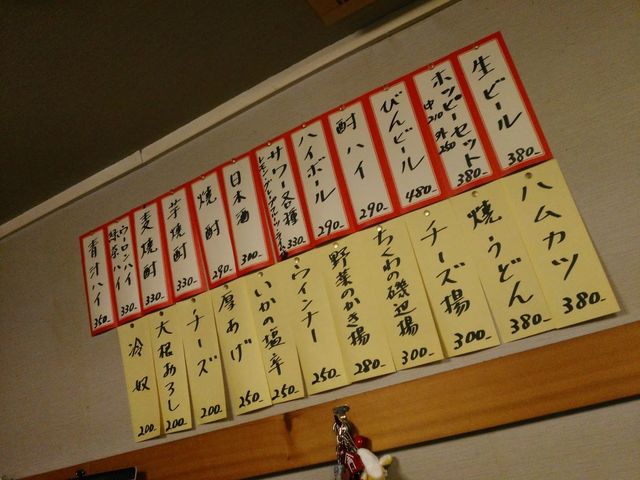 生ビール 380-
ホッピーセット 380-
中210 外250
びんビール 480-
酎ハイ 290-
ハイボール 290-
サワー各種 330-
日本酒 300-
焼酎 290-
芋焼酎 330-
麦焼酎 330-
ウーロンハイ
緑茶ハイ 330-
青汁ハイ 350-
ハムカツ 380-
焼うどん 380-
チーズ揚 300-
ちくわの磯辺揚 300-
野菜のかき揚 280-
ウインナー 250-
いかの塩辛 250-
厚あげ 250-
チーズ 200-
大根おろし 200-
冷奴 200-